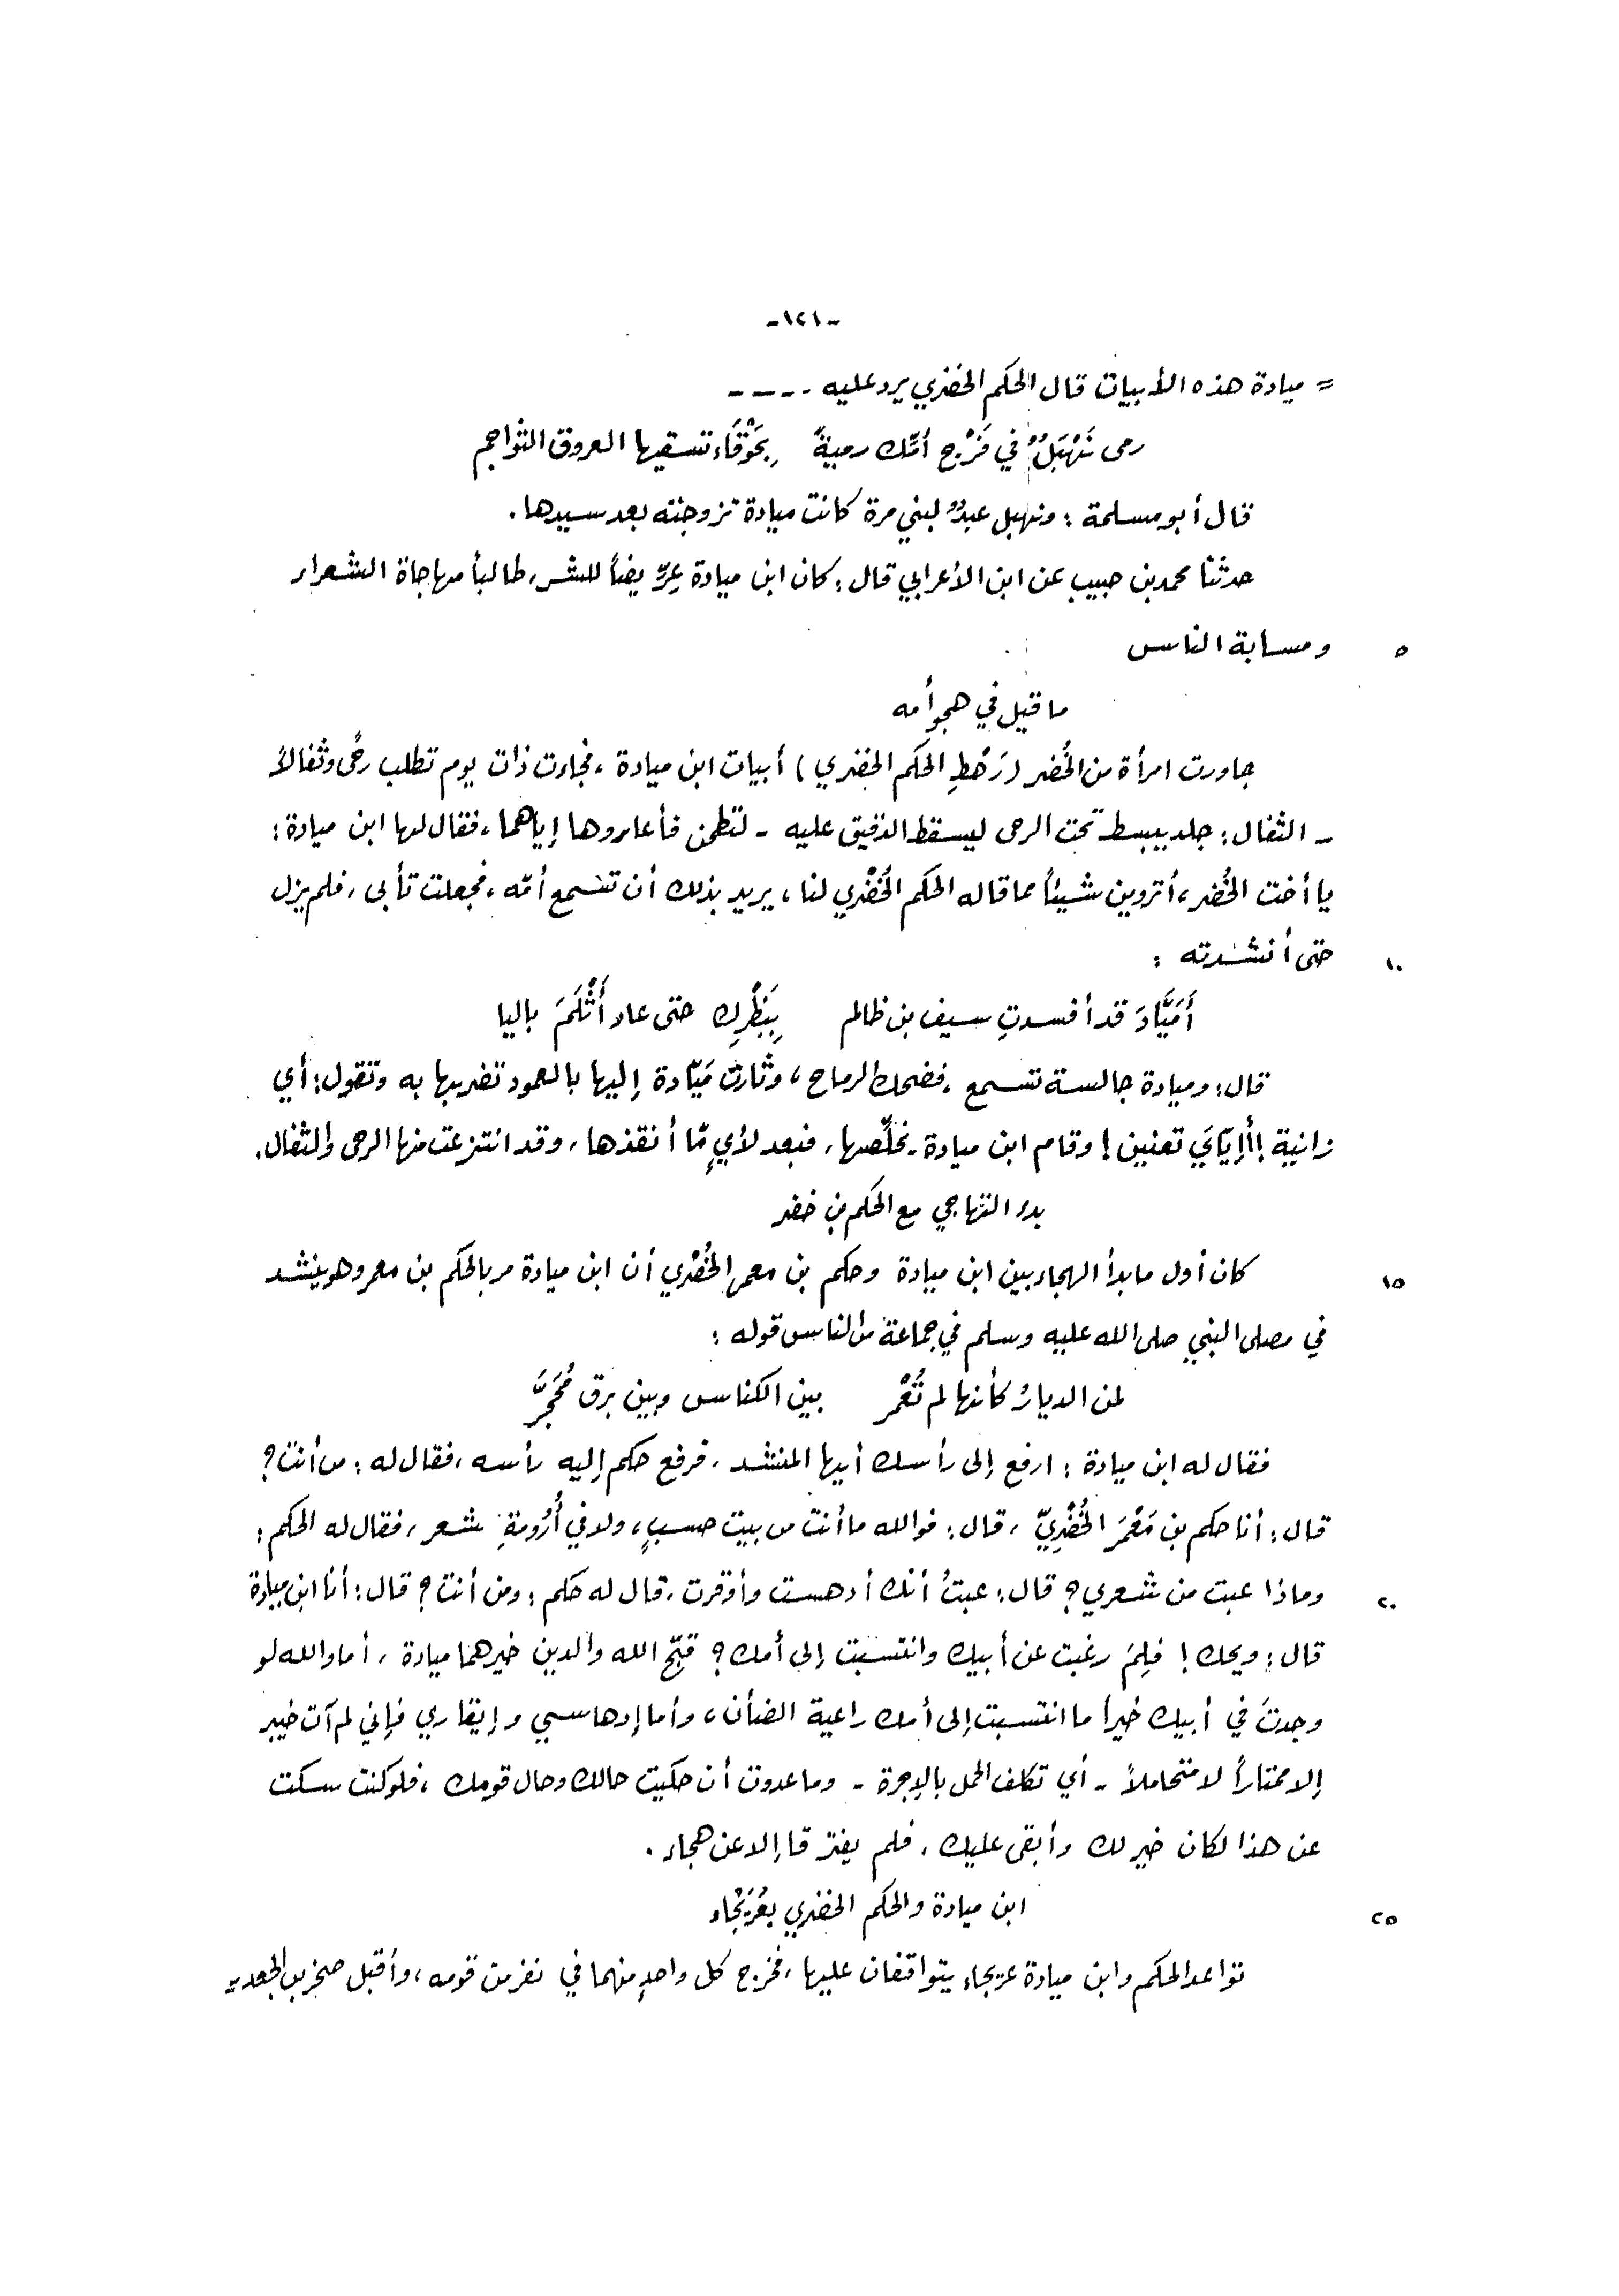 -١٢١-
= ميادة هذه الأبيات قال الحكم الخضري يرد عليه - - - -
رمى نَهْبَلٌ في فَرْجِ أمّك رميةً بِحَوْقَاءَ تسقيها العروق الثواجم
قال أبو مسلمة : ونهبل عبدٌ لبني مرة كانت ميادة تزوجته بعد سيدها .
حدثنا محمد بن حبيب عن ابن الأعرابي قال : كان ابن ميادة عِرِّيضاً للشر ، طالباً مهاجاة الشعراء
٥ ومسابة الناس
ما قيل في هجو أمه
جاورت امرأة من الخُضر (رَهْطِ الحكم الخضري) أبيات ابن ميادة ، فجاءت ذات يوم تطلب رحًى وثفالاً
- الثفال : جلد يبسط تحت الرحى ليسقط الدقيق عليه - لتطحن فأعاروها إياهما ، فقال لها ابن ميادة :
يا أخت الخُضر ، أتروين شيئاً مما قاله الحكم الخُضْري لنا ، يريد بذلك أن تسمع أمّه ، فجعلت تأبى ، فلم يزل
١٠ حتى أنشدته :
أَمَيَّادَ قد أفسدتِ سيف بن ظالم بِبَظْرِكِ حتى عاد أَثْلَمَ باليا
قال : وميادة جالسة تسمع ، فضحك الرماح ، وثارت مَيّادة إليها بالعمود تضربها به وتقول : أي
زانية ! أإيّايَ تعنين ! وقام ابن ميادة يخلّصها ، فبعد لأيٍ مّا أنقذها ، وقد انتزعت منها الرحى والثفال .
بدء التهاجي مع الحكم بن خضر
١٥ كان أول ما بدأ الهجاء بين ابن ميادة وحكم بن معمر الخُضْري أن ابن ميادة مر بالحكم بن معمر وهو ينشد
في مصلى النبي صلى الله عليه وسلم في جماعة من الناس قوله :
لمن الديارُ كأنها لم تُعْمَر بين الكناس وبين برق مُحَجَّرِ
فقال له ابن ميادة : ارفع إلى رأسك أيها المنشد ، فرفع حكم إليه رأسه ، فقال له : من أنت ؟
قال : أنا حكم بن مَعْمَر الخُضْرِيّ ، قال : فوالله ما أنت من بيت حسبٍ ، ولا في أُرُومةِ شعر ، فقال له الحكم :
٢٠ وماذا عبت من شعري ؟ قال : عبتُ أنك أدهست وأوقرت ، قال له حكم : ومن أنت ؟ قال : أنا ابن ميادة
قال : ويحك ! فلِمَ رغبت عن أبيك وانتسبت إلى أمك ؟ قبّح الله والدين خيرهما ميادة ، أما والله لو
وجدتَ في أبيك خيراً ما انتسبت إلى أمك راعية الضأن ، وأما إدهاسي وإيقاري فإني لم آت خيبر
إلا ممتاراً لا متحاملاً - أي تكلف الحمل بالإجرة - وما عدوت أن حكيت حالك وحال قومك ، فلو كنت سكت
عن هذا لكان خير لك وأبقى عليك ، فلم يفترقا إلا عن هجاء .
٢٥ ابن ميادة والحكم الخضري بعُرَيْجاء
تواعد الحكم وابن ميادة عريجاء يتواقفان عليها ، فخرج كل واحدٍ منهما في نفر من قومه ، وأقبل صخر بن الجعد =